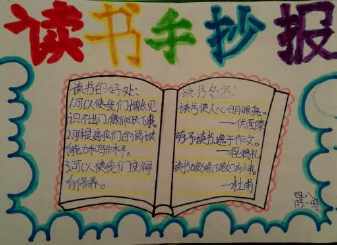 读书手抄报
读书的好处:
1.可以使我们增长见
识,不出门,便知天下事
2.可提高我们的阅读
能力和写作水平。
3.可以使我们变得
有修养。
读书名言:
读书使人心明眼亮。
——伏尔泰
劳于读书,逸于作文。
——程端礼
——杜甫